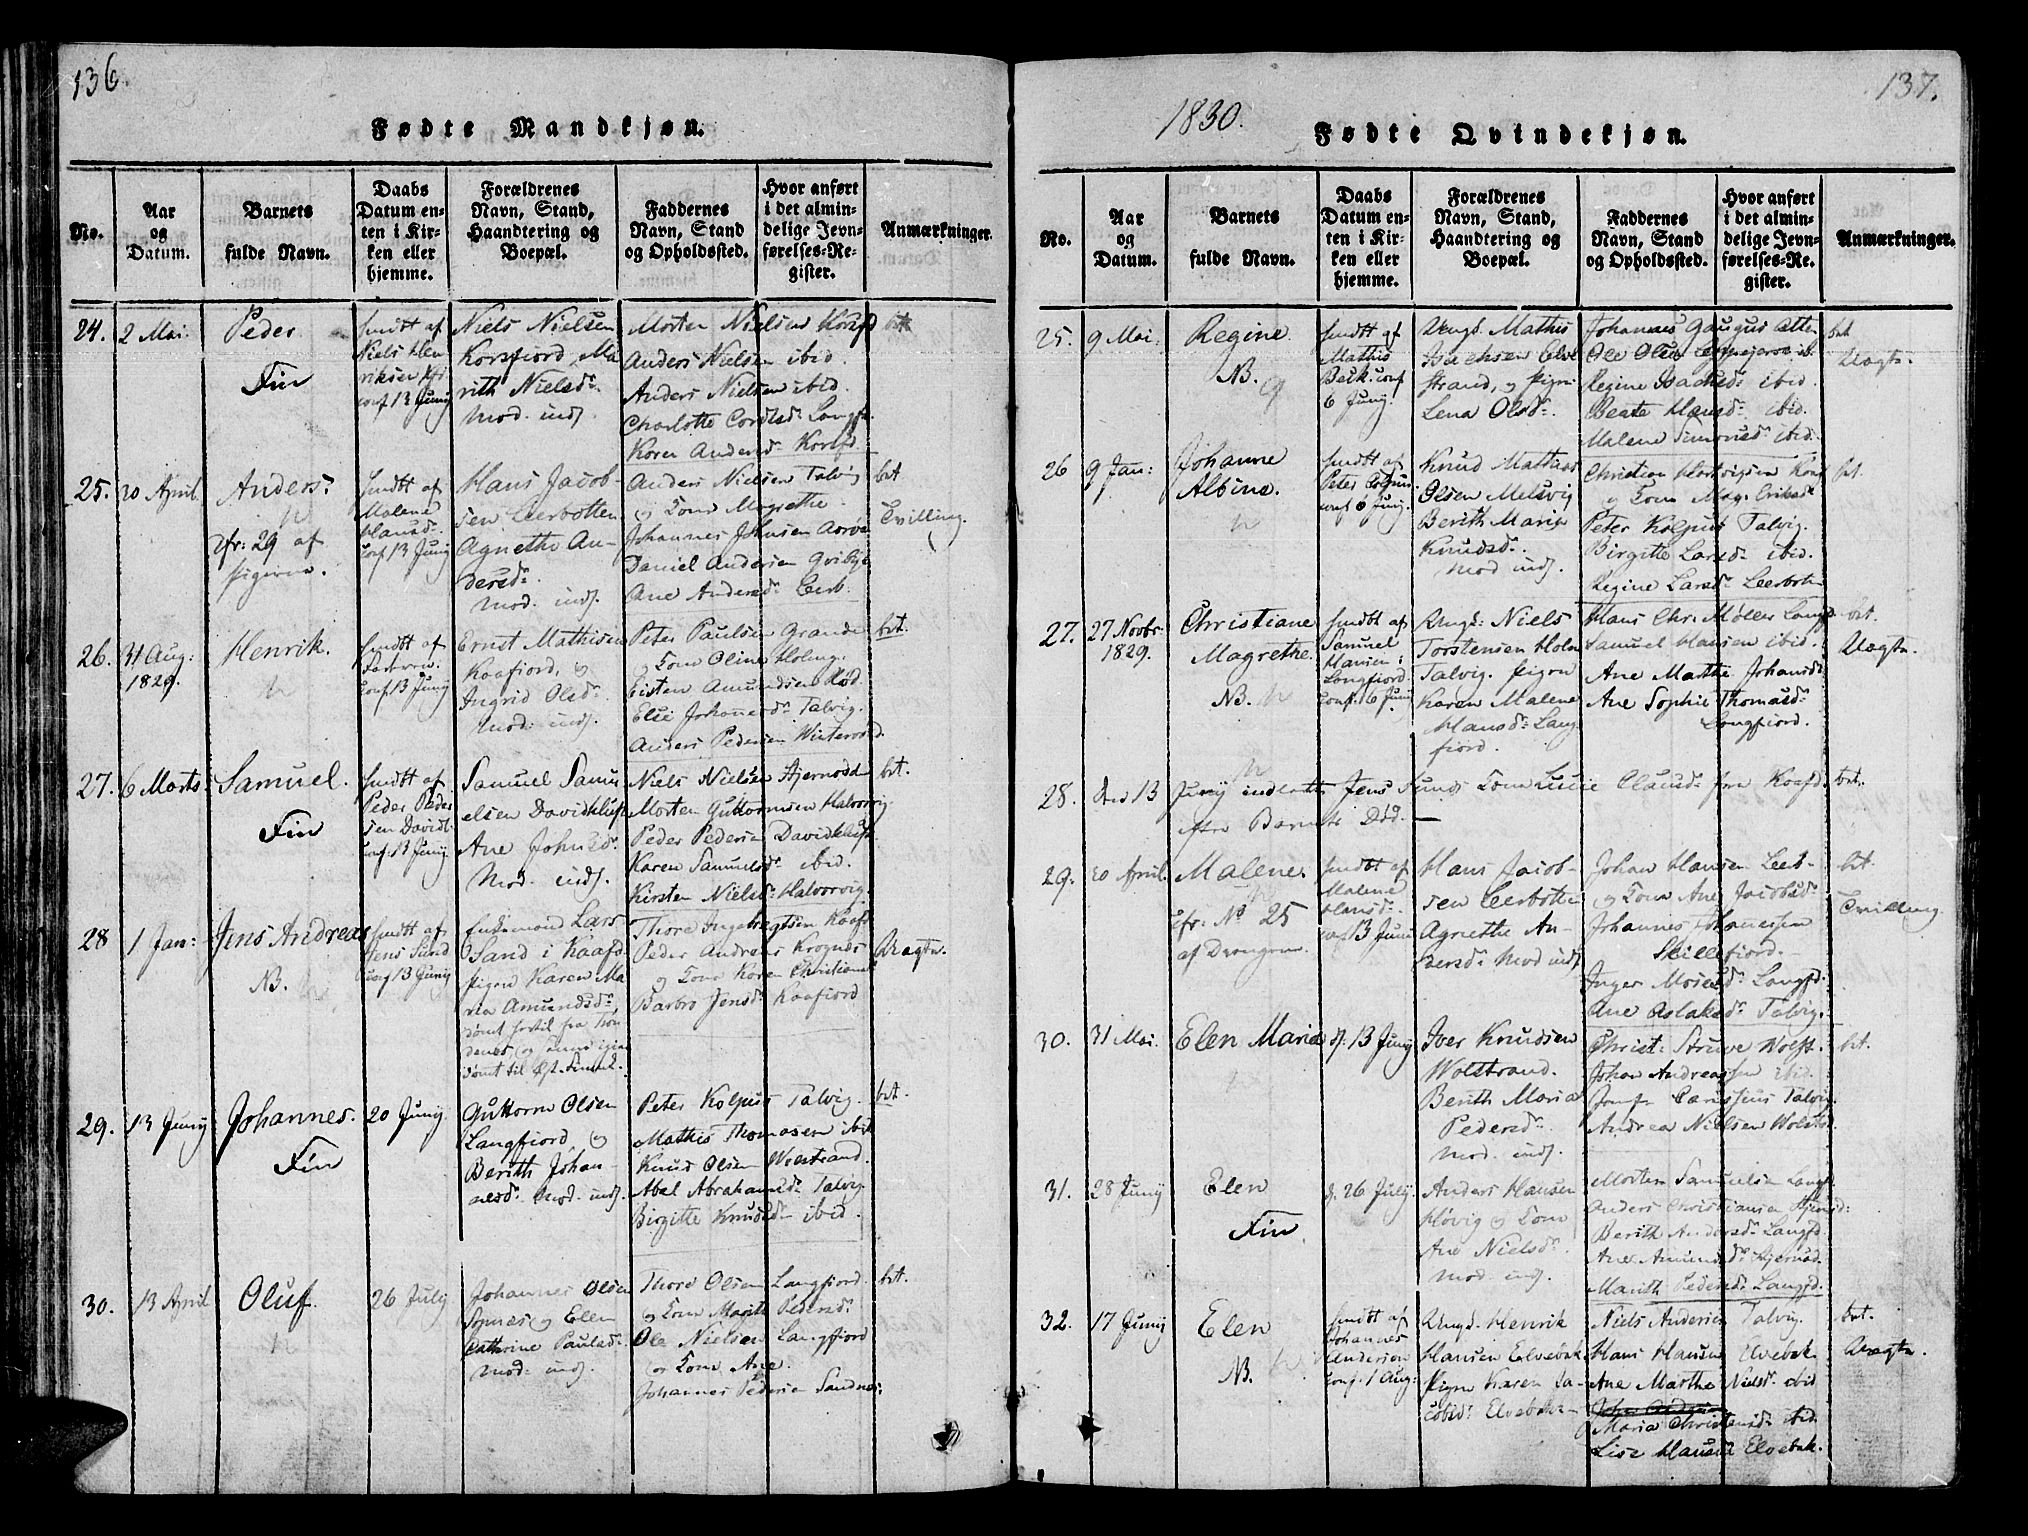 136.
Fødte Mandkjøn.
No.
Aar
og
Datum.
Barnets
fulde Navn.
Daabs
Datum en-
ten i Kir-
ken eller
hjemme.
Forældrenes
Navn, Stand,
Haandtering og
Boepæl.
Faddernes
Navn, Stand
og Opholdssted.
Hvor anført
i det almin-
delige Jevn-
førelses-Re-
gister.
Anmærkninger.
24.
2 Mai.
Peder
Fin
hmdt af
Niels Hen
riksen
conf 13 Junij
Niels Nielsen
Korsfiord, Ma
rith Nielsd:
Mod. indj.
Morten Nielsens Korsfd
Anders Nielsen ibid.
Anders Nielsen ibid.
Charlotte Cordtsd: Langf.
Karen Andersd: Korsfd.
25.
30 April
Anders
cfr: 29 af
Pigerne.
hmdt af
Malene
Hansd:
conf 13 Junij
Hans Jacob-
sen Leerbotten
Agnethe An-
dersd:
Mod. indj.
Anders Nielsen Talvig
og Kone Magrethe
Johannes Johnsen Aarøe
Daniel Andersen
Ane Andersd: Leerb.
bet
Tvilling.
26.
31 Aug:
1829.
Henrik.
hmdt af
conf 13 Junij
Ernst Mathisen
Kaafiord, og
Ingrid Olsd:
Mod: indj.
Peter Paulsen Grande
og Kone Oline
Eisten Amundsen
Elsi Johannesd: Talvig.
Anders Pedersen
bet.
27.
6 Marts
Samuel.
Fin
hmdt af
Peder Peder
sen Davidkl:
conf: 13 Junij
Samuel Samu
elsen Davidkluft
Ane Johnsd:
Mod. indj.
Niels Nielsen
Morten Guttormsen Halvorvig
Peder Pedersen Davidkluft
Karen Samuelsd: ibid.
Kirsten Nielsd: Halvorvig.
bet.
28
1 Jan:
Jens Andreas
NB.
hmdt af
Jens Sund
conf 13 Junij
Enkemand Lars
Sand i Kaafd
Pigen Karen Ma
ria Amundsd:
Thore Ingebregtsen Kaafd
Peder Andreas
og Kone Karen Christiane
Barbro Jensd: Kaafiord
Uægte.
29.
13 Junij
Johannes.
Fin
20 Junij.
Guttorm Olsen
Langfjord, og
Berith Johan-
nesd: Mod. indj.
Peter Kolpus Talvig.
Mathis Thomasen ibid
Knud Olsen Wolstrand.
Abel Abrahamsd: Talvig
Birgitte Knudsd: ibid.
bet.
30.
13 April
Oluf.
26 Julij
Johannes Olsen
Sopnes og Elen
Cathrine Paulsd:
Mod: indj.
Thore Olsen Langfjord.
og Kone Marith Pedersd:
Ole Nielsen Langfjord
og Kone Ane.
Johannes Pedersen Sandnes.
bet.
1830.
137.
Fødte Qvindekjøn.
No.
Aar
og
Datum.
Barnets
fulde Navn.
Daabs
Datum en-
ten i Kir-
ken eller
hjemme.
Forældrenes
Navn, Stand,
Haandtering og
Boepæl.
Faddernes
Navn, Stand
og Opholdssted.
Hvor anført
i det almin-
delige Jevn-
førelses-Re-
gister.
Anmærkninger.
25.
9 Mai.
Regine
NB.
hmdt af
Mathis
Beck: conf
6 Junij.
Ungk. Mathis
Isachsen Elve
strand, og Pigen
Lena Olsd:
Johannes Gaugus Alten
Ole Olsen
Regine Isachsd: ibid.
Beate Hansd: ibid.
Malene Simonsd: ibid.
bet
Uægte.
26
9 Jan:
Johanne
Albine.
hmdt af
Peter Kolpus
conf 6 Junij.
Knud Mathias
Olsen Melsvig
Berith Maria
Knudsd:
Mod indj.
Christian Hertvigsen
og Kone Mag. Eriksd:
Peter Kolpus Talvig.
Birgitte Larsd: ibid.
Regine Larsd: Leerbotn
bet.
27.
27 Novbr:
1829.
Christiane
Magrethe.
NB.
hmdt af
Samuel
Hansen i
Langfjord
conf. 6 Junij
Ungk: Niels
Torstensen Holm
Talvig. Pigen
Karen Malene
Hansd: Lang
fjord.
Hans Chr: Møller Langfd
Samuel Hansen ibid.
Ane Marthe Johansd:
Ane Sophie Thomasd:
Langfjord.
bet.
Uægte.
28.
den 13 Junij indledtes Jens Sunds Kone Lucie Clausd: fra Kaafd.
efter Barnets Død. —
bet.
29.
30 April.
Malene.
cfr: No 25
af Drengene.
hmdt af
Malene
Hansd:
conf 13 Junij
Hans Jacob-
sen Leerbotten
Agnethe An-
dersd: Mod indj
Johan Hansen Leerb-
og Kone Ane Jacobsd:
Johannes Johannessen
Skillefjord.
Inger Mosesd: Langfd.
Ane Aslaksd: Talvig.
bet.
Tvilling.
30.
31 Mai.
Elen Maria
d: 13 Junij
Iver Knudsen
Wolstrand.
Berith Maria
Pedersd:
Mod. indj.
Christ: Struve Wolst.
Johan Andreassen ibid.
Jomf: Carstens Talvig.
Andrea Nielsen Wolstr.
bet.
31.
28 Junij
Elen
Fin
d. 26 Julij.
Anders Hansen
Høvig og Kone
Ane Nielsd:
Mod. indj.
Morten Samuelsen Langf
Anders Christiansen
Berith Andersd: Langfd.
Ane Amundsd:
Marith Pedersd: Langfd.
32.
17 Junij
Elen
NB.
hmdt af
Johannes
Andersen
conf. 1 Aug:
Ungk. Henrik
Hansen Elvebak.
Pigen Karen Ja-
cobsd: Elvebak
Niels Andersen Talvig.
Hans Hansen Elvebak
Ane Marthe Nielsd: ibid
Maria Christensd: ibid
Lise Hansd Elvebak.
bet.
Uægte.